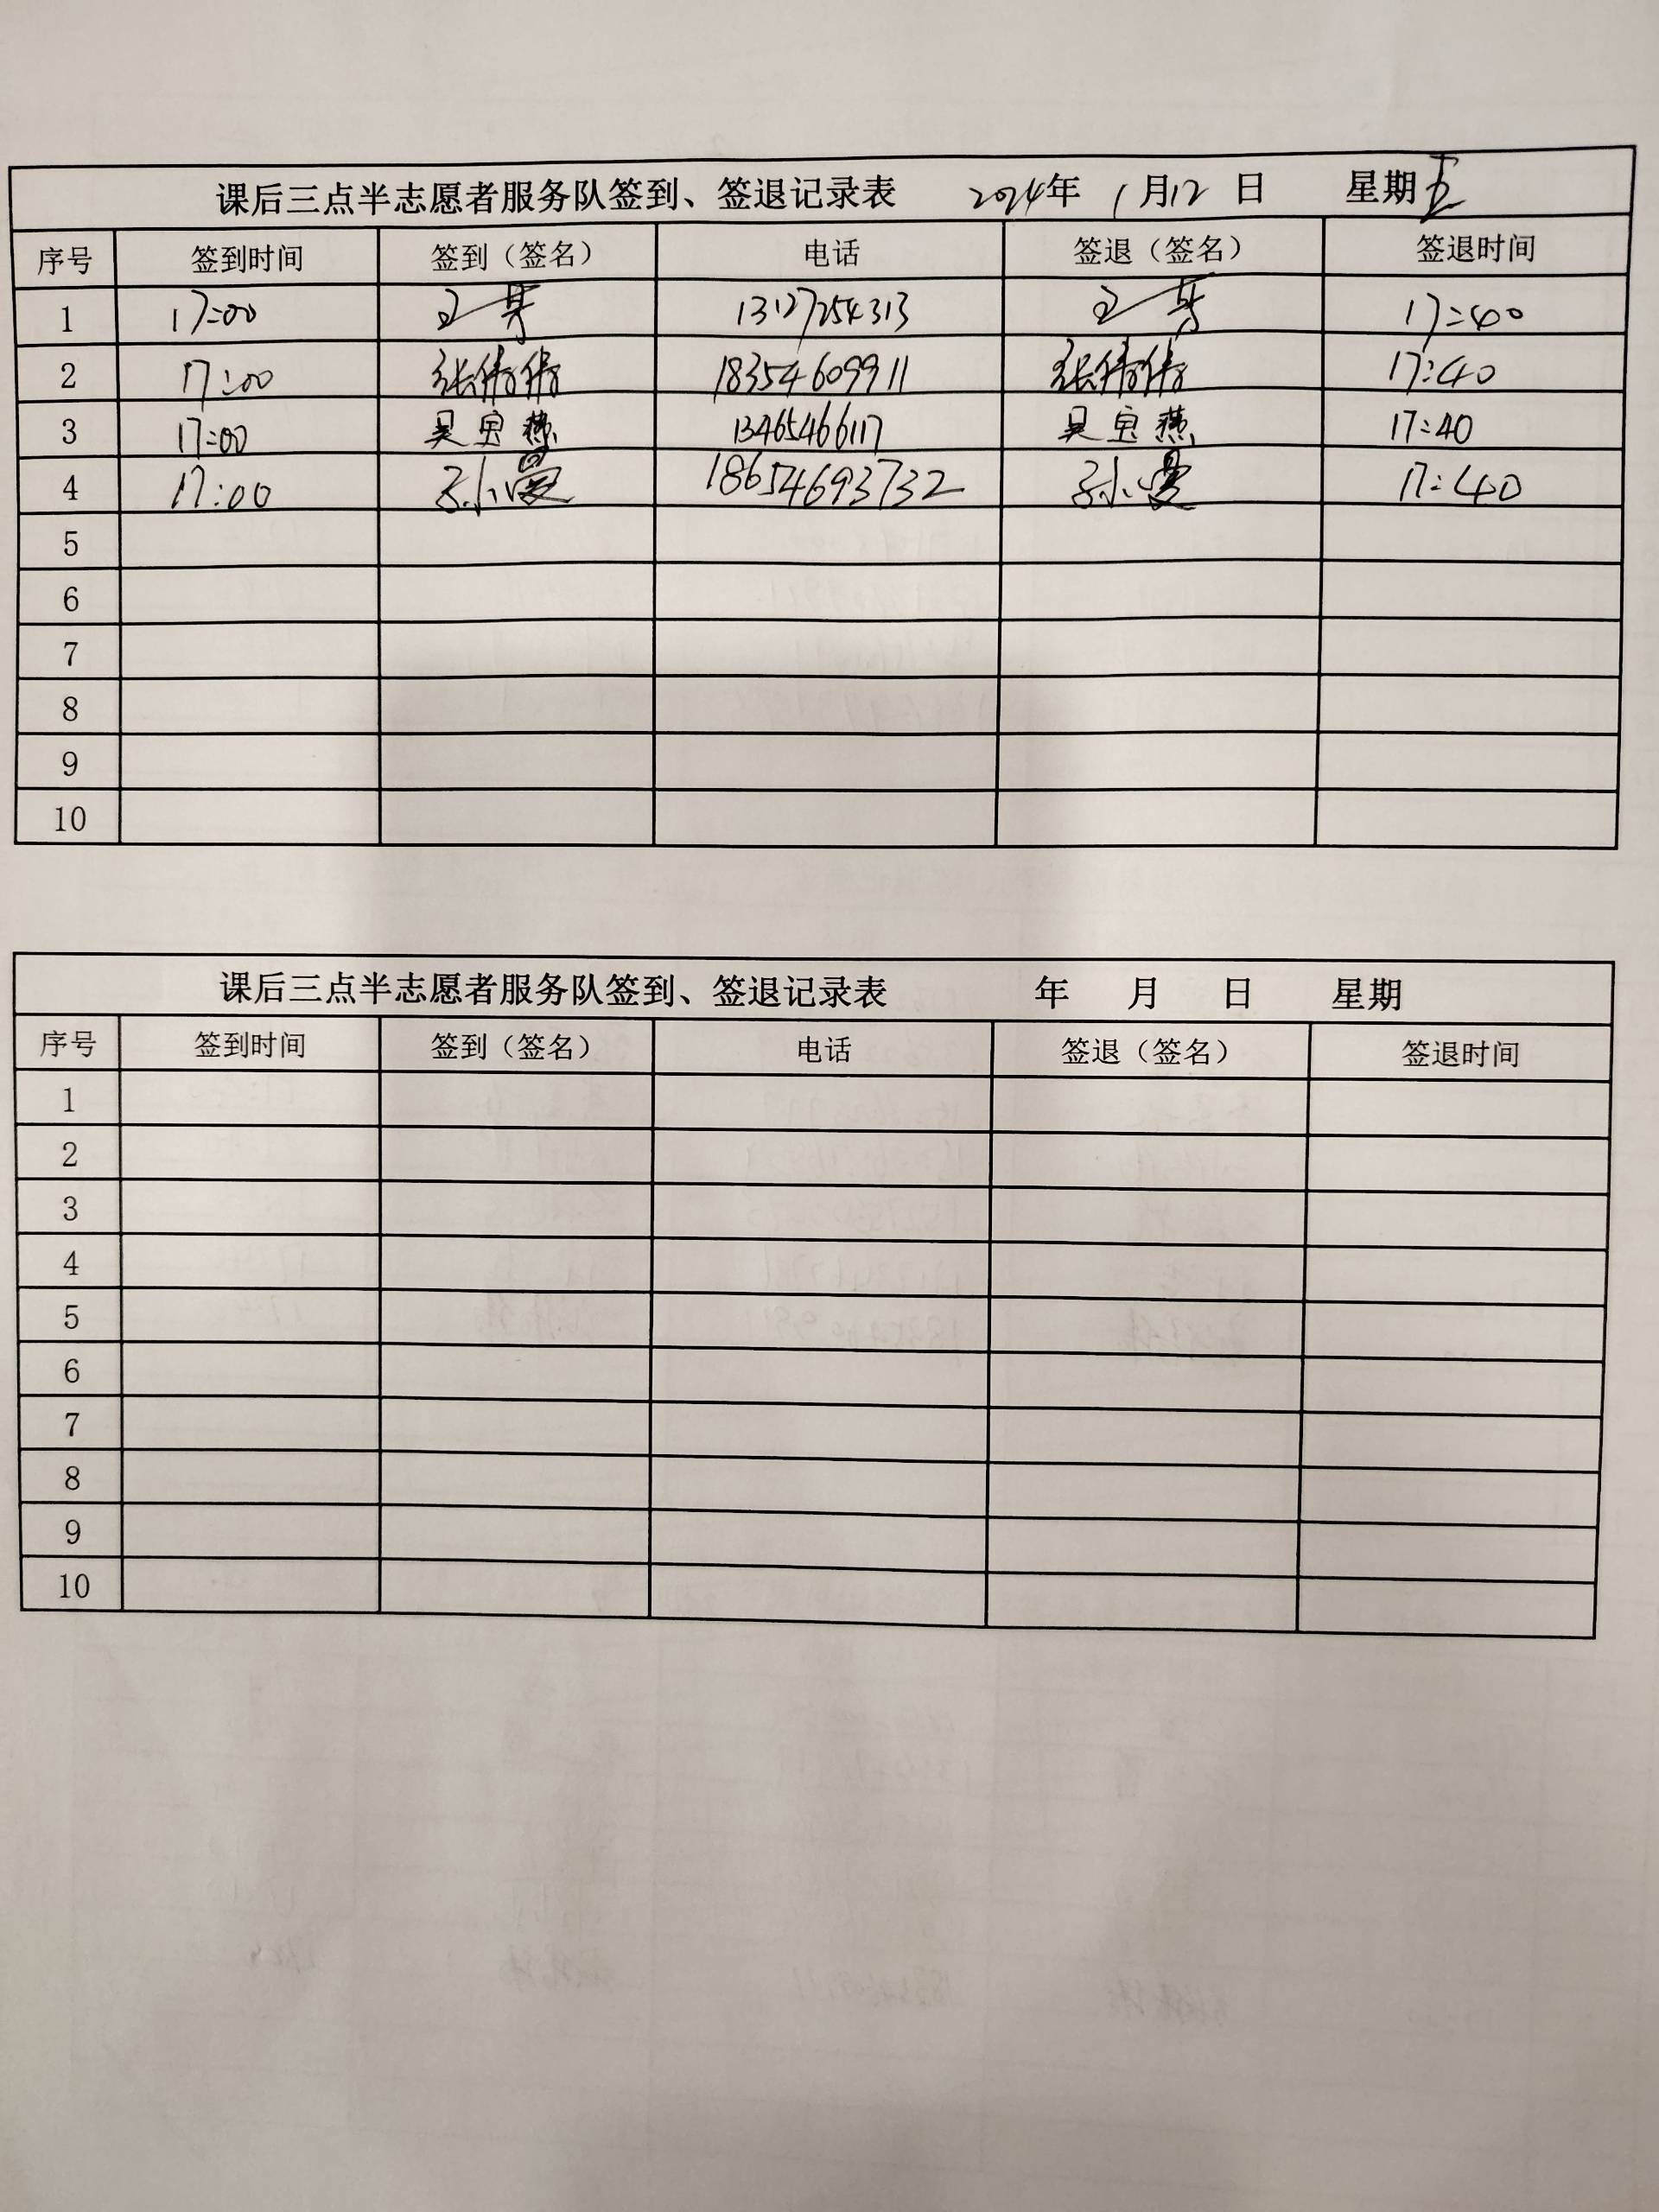 课后三点半志愿者服务队签到、签退记录表 2024年 1月12日 星期五
序号 签到时间 签到（签名） 电话 签退（签名） 签退时间
1 17:00 13127254313 17:40
2 17:00 张倩倩 18354609911 张倩倩 17:40
3 17:00 吴宝燕 13465466117 吴宝燕 17:40
4 17:00 孙小曼 18654693732 孙小曼 17:40
5
6
7
8
9
10
课后三点半志愿者服务队签到、签退记录表 年 月 日 星期
序号 签到时间 签到（签名） 电话 签退（签名） 签退时间
1
2
3
4
5
6
7
8
9
10